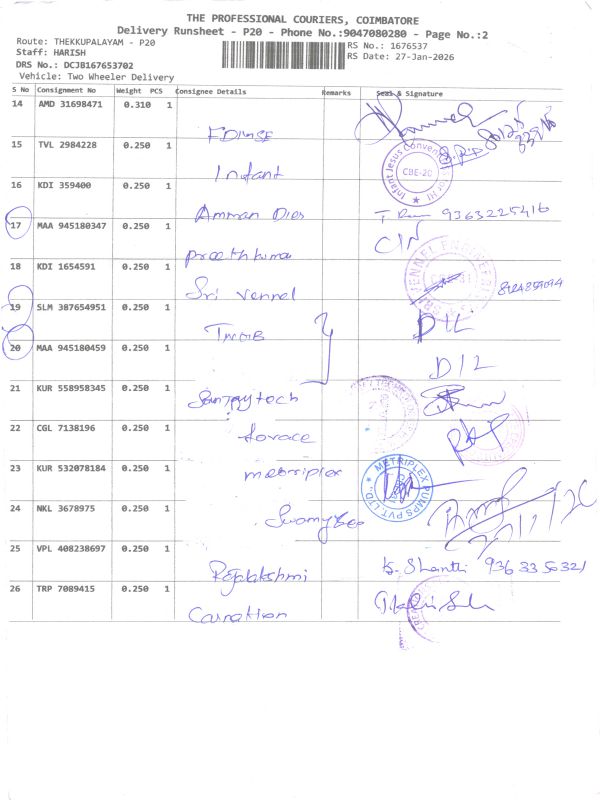 THE PROFESSIONAL COURIERS, COIMBATORE
Delivery Runsheet - P20 - Phone No.:9047080280 - Page No.:2
Route: THEKKUPALAYAM - P20
RS No.: 1676537
Staff: HARISH
RS Date: 27-Jan-2026
DRS No.: DCJB167653702
Vehicle: Two Wheeler Delivery
S No Consignment No Weight PCS Consignee Details Remarks Seal & Signature
14 AMD 31698471 0.310 1
15 TVL 2984228 0.250 1
Infant
Infant Jesus Conven
CBE-20
16 KDI 359400 0.250 1
Amman Dies 9363225416
17 MAA 945180347 0.250 1
CIN
18 KDI 1654591 0.250 1
Sri Vennel
19 SLM 387654951 0.250 1
D/L
20 MAA 945180459 0.250 1
D/L
21 KUR 558958345 0.250 1
22 CGL 7138196 0.250 1
forace
23 KUR 532078184 0.250 1
metriplex
METRIPLEX PUMPS PVT LTD.,
24 NKL 3678975 0.250 1
25 VPL 408238697 0.250 1
Rajalakshmi K. Shanthi 936 33 50321
26 TRP 7089415 0.250 1
Carnation